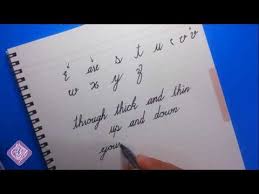 q are s t u v w
w x y z
through thick and thin
up and down
your